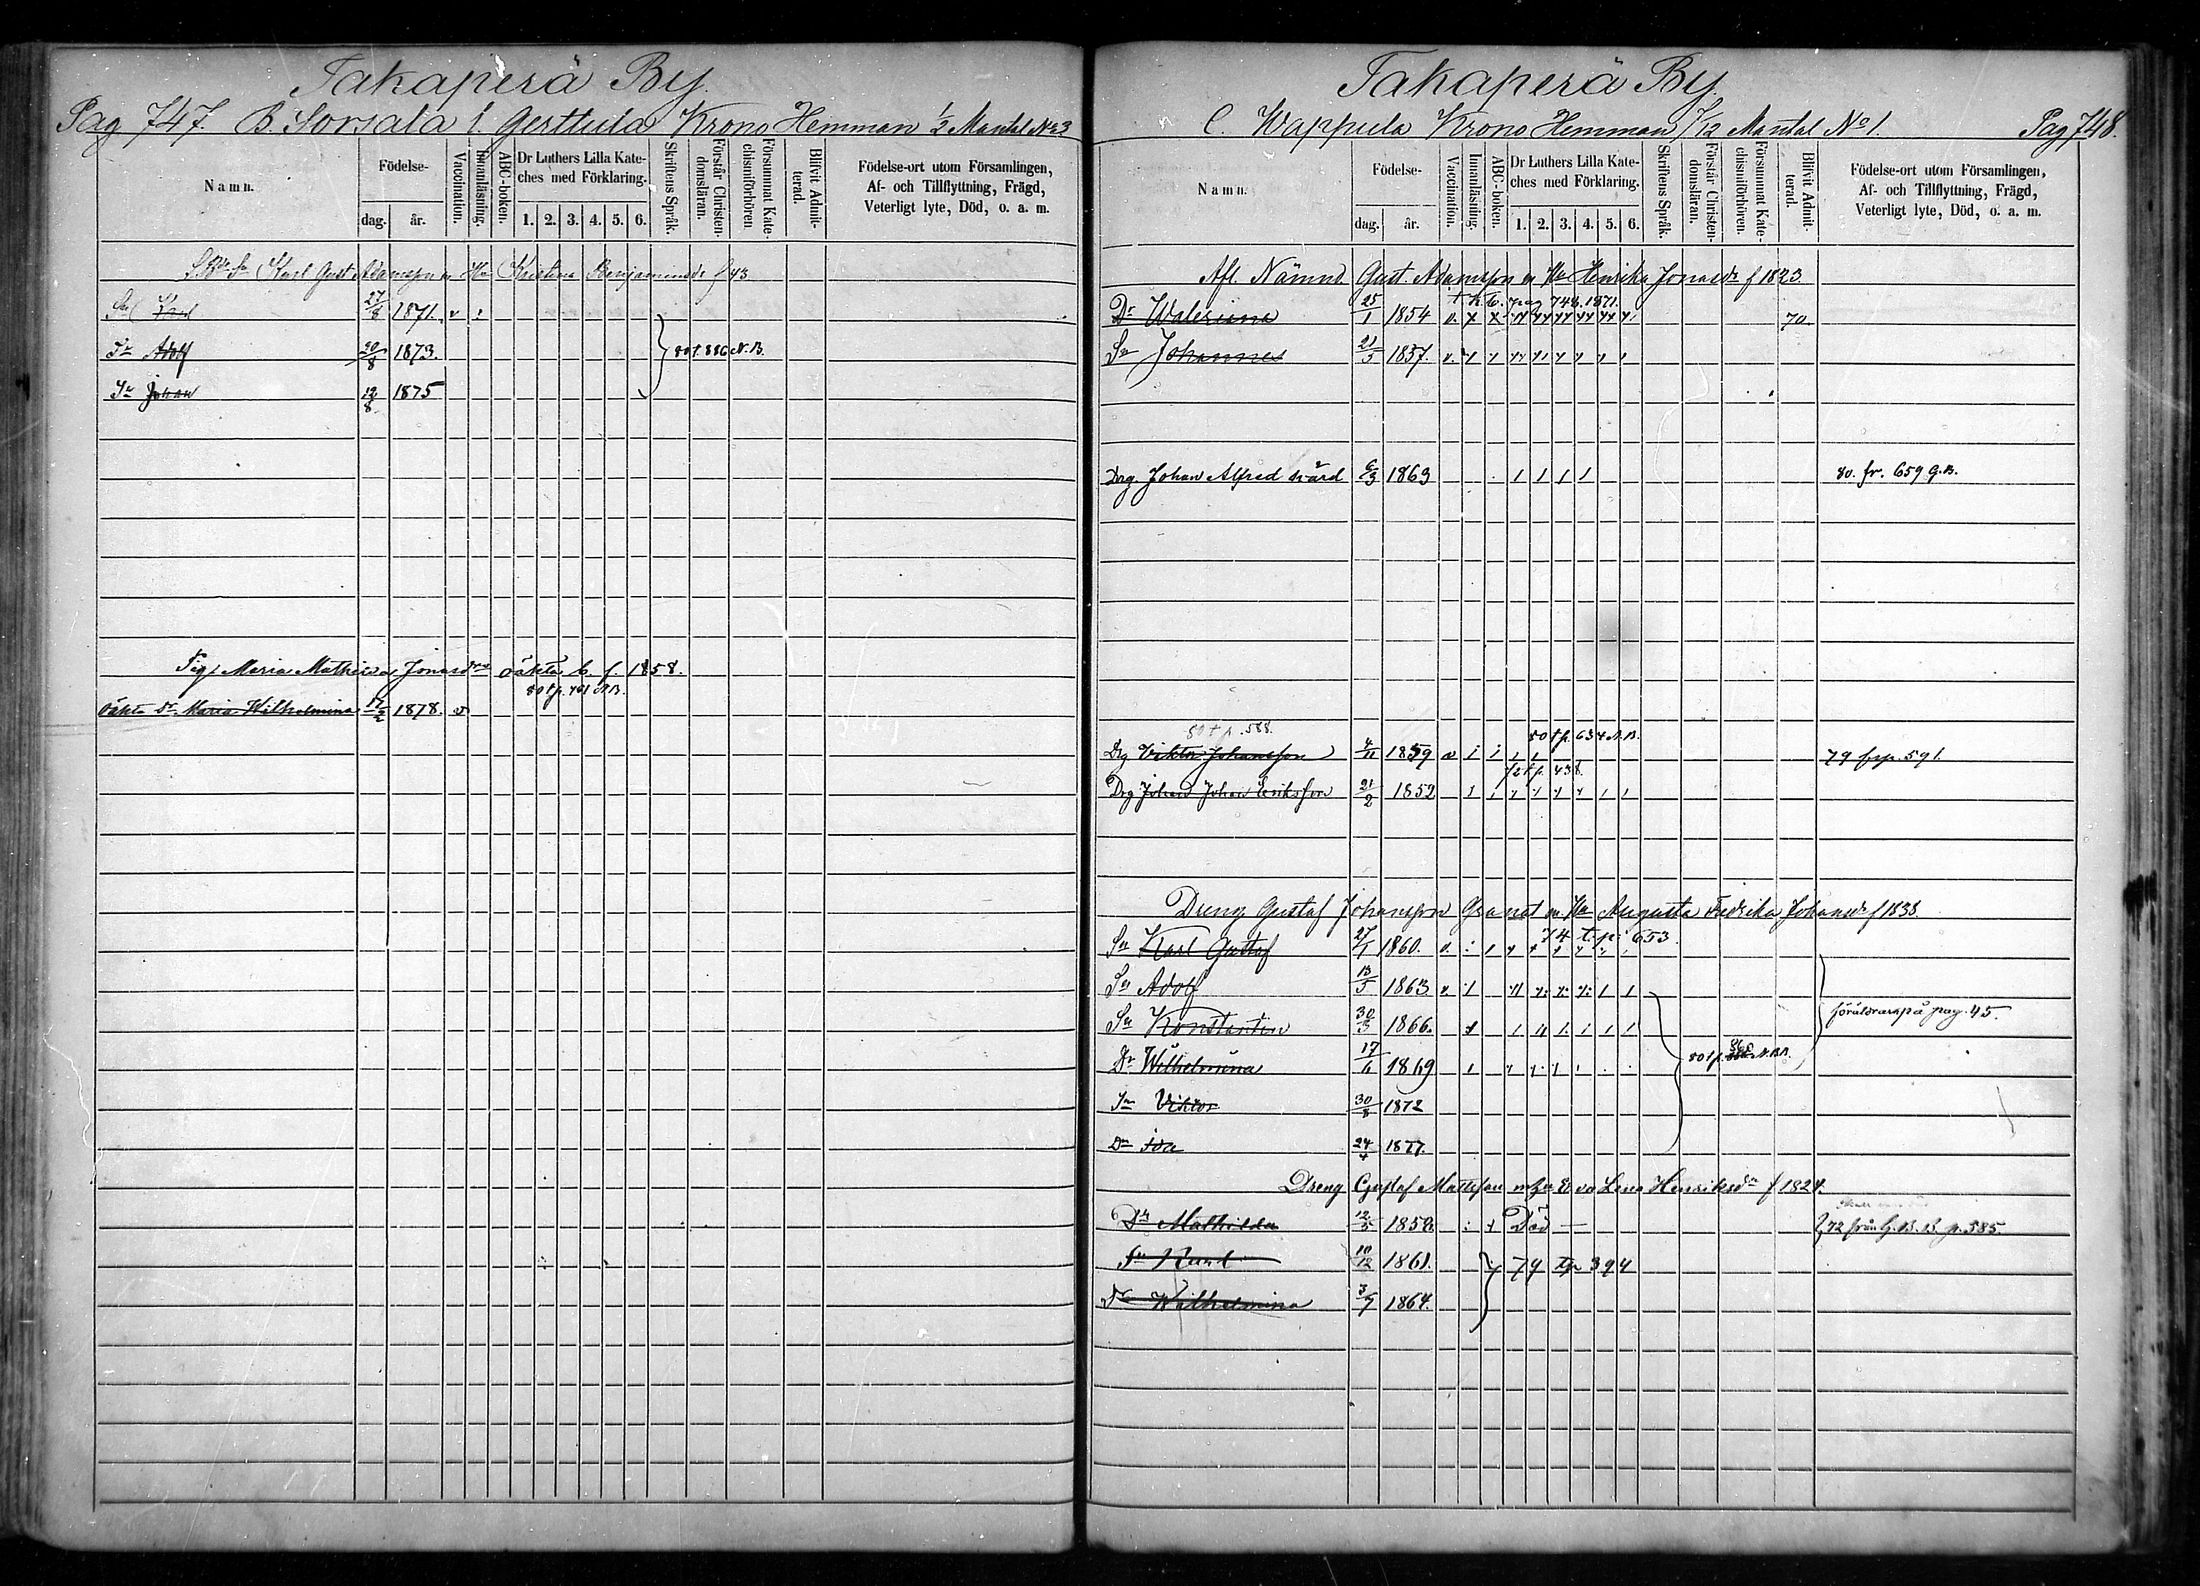 Takaperä By.
Pag 747. B. Sorsala l. Gerttula Krono Hemman 1/2 Mantal No 3
Namn.
Födelse-
dag. år.
Vaccination.
Innanläsning.
ABC-boken.
Dr Luthers Lilla Kate-
ches med Förklaring.
1. 2. 3. 4. 5. 6.
Skriftens Språk.
Förstår Christen-
domsläran.
Försummat Kate-
chismiförhören
Blifvit Admit-
terad.
Födelse-ort utom Församlingen,
Af- och Tillflyttning, Frägd,
Veterligt lyte, Död, o. a. m.
Karl Gust Adamsson o Hu Kristina Benjaminsdr f 43
Sn Karl 27/8 1871. v
Sn Adolf 20/8 1873. 80 t. 886 N.B.
Sn Johan 12/8 1875
Pig. Maria Mathilda Jonasdrs oäkta b. f. 1858.
80 t p. 701 N.B.
oäkta dr Maria Wilhelmina 17/2 1878. v
Takaperä By.
C. Wappula Krono Hemman 7/12 Mantal No 1. Pag 748.
Namn.
Födelse-
dag. år.
Vaccination.
Innanläsning.
ABC-boken.
Dr Luthers Lilla Kate-
ches med Förklaring.
1. 2. 3. 4. 5. 6.
Skriftens Språk.
Förstår Christen-
domsläran.
Försummat Kate-
chismiförhören.
Blifvit Admit-
terad.
Födelse-ort utom Församlingen,
Af- och Tillflyttning, Frägd,
Veterligt lyte, Död, o. a. m.
Afl. Nämnd. Gust. Adamsson o Hu Henrika Jonasdr f 1823.
pag 748. 1871.
Dr Waleriana 25/1 1854 v. 70.
Sn Johannes 21/5 1857. v.
Drg. Johan Alfred Svärd 6/3 1863 80. fr. 659 G.B.
80 t p. 588. 80 t p. 634 N.B.
Drg Viktor Johansson 4/11 1859 v 79 frp. 591.
72 t p. 438.
Drg Johan Johan Eriksson 21/2 1852
Dreng Gustaf Johansson Granat o Hu Augusta Fredrika Johansdr f 1838.
74 t. p. 653.
Sn Karl Gustaf 27/1 1860. v.
Sn Adolf 13/5 1863. v.
Sn Konstantin 30/3 1866. föräldrarne på pag. 45.
Dr Wilhelmina 17/6 1869 80 t p. 860 N.B.
Sn Viktor 30/8 1872
Dr Ida 24/4 1877.
Dreng Gustaf Mattsson o hu Eva Lena Henriksdr f 1824.
Dr Mathilda 12/5 1858 Död — 72 från G.B.B. p. 585.
Sn Karl 10/12 1861. 79 tp 394
Dr Wilhelmina 3/9 1864.